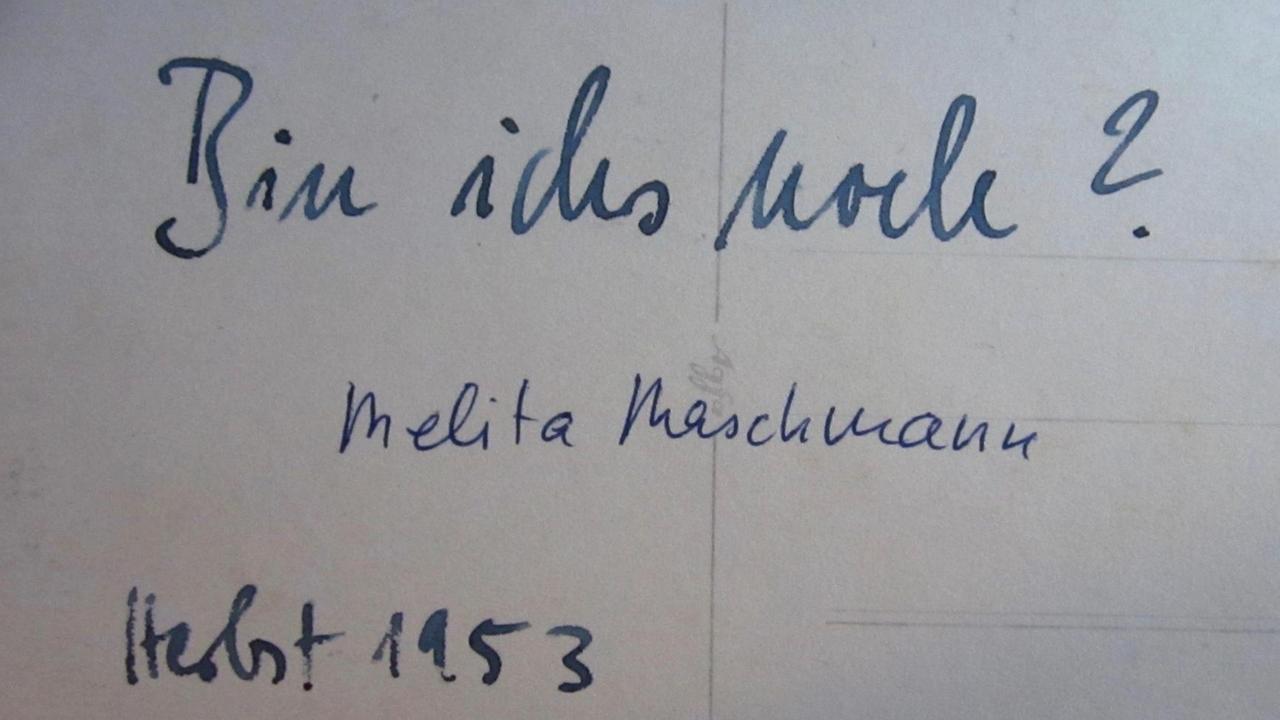 Bin ichs noch?
Melita Maschmann
Herbst 1953